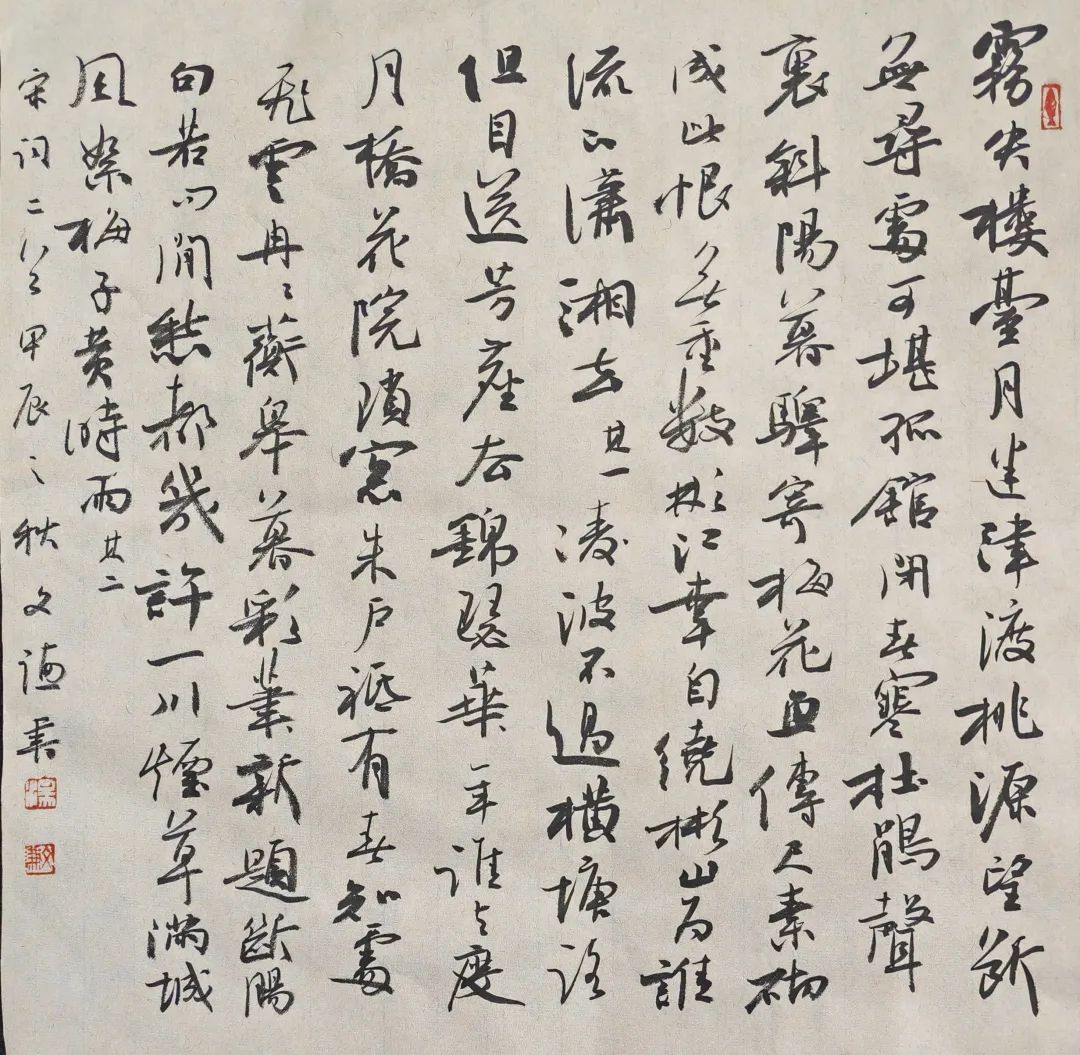 霧失樓臺月迷津渡桃源望斷
無尋處可堪孤館閉春寒杜鵑聲
裏斜陽暮驛寄梅花魚傳尺素砌
成此恨無重數彬江幸自繞彬山為誰
流下瀟湘去其一凌波不過橫塘路
但目送芳塵去錦瑟華年誰与度
月橋花院瑣窓朱户祗有春知處
飛雲冉冉蘅皋暮彩筆新題斷腸
句若问閒愁都幾許一川煙草滿城
風絮梅子黄時雨其二
宋词二首甲辰之秋文謙書